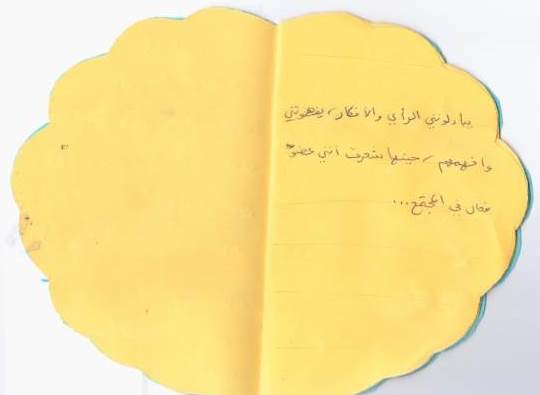 يبادلونني الرأي والأفكار، يفهمونني
وأفهمهم، حينها شعرت أنني عضوٌ
فعال في المجتمع...